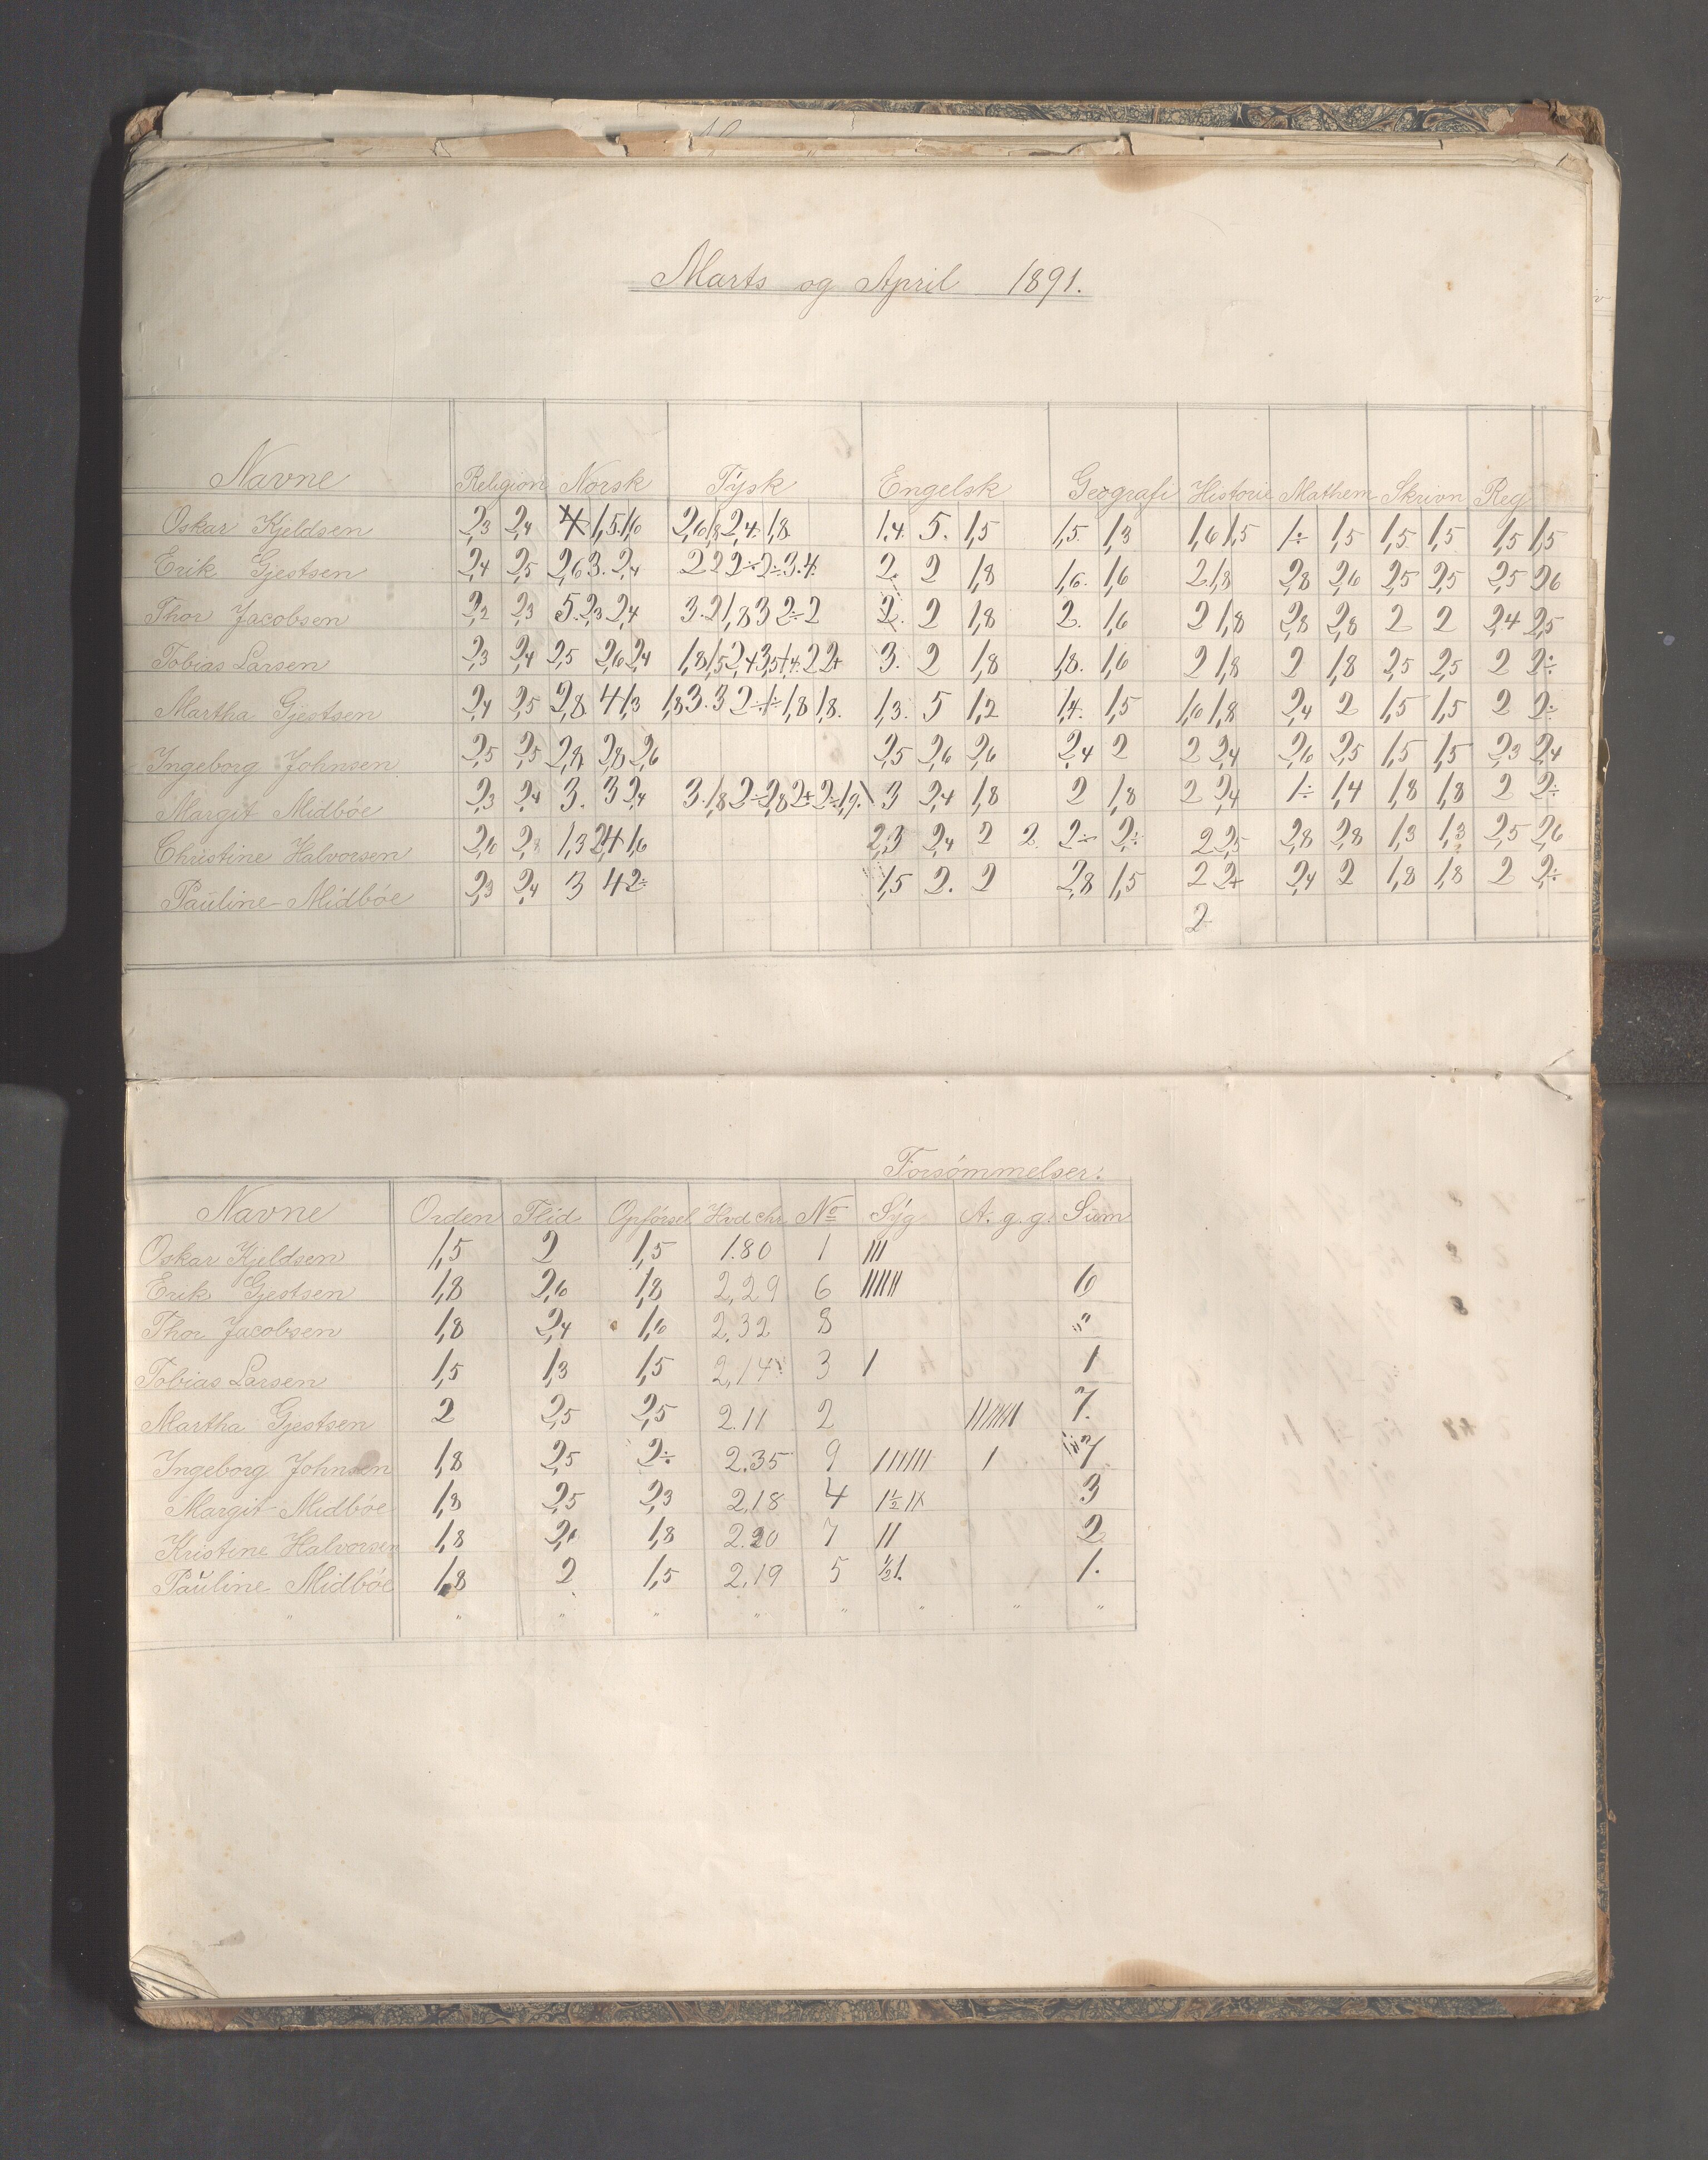 Marts og April 1891.
Navne Religion Norsk Tysk Engelsk Geografi Historie Mathem Skrivn Reg
Oskar Kjeldsen 2,3 2,4 4 1,5 1,6 2,6 1,8 2,4 1,8 1,4 5. 1,5 1,5 1,3 1,6 1,5 1÷ 1,5 1,5 1,5 1,5 1,5
Erik Gjestsen 2,4 2,5 2,6 3. 2,4 2 2 2÷ 2÷ 3. 4. 2. 2 1,8 1,6. 1,6 2 1,8 2,8 2,6 2,5 2,5 2,5 2,6
Thor Jacobsen 2,2 2,3 5. 2,3 2,4 3. 2 1,8 3 2÷ 2 2. 2 1,8 2. 1,6 2 1,8 2,8 2,8 2 2 2,4 2,5
Tobias Larsen 2,3 2,4 2,5 2,6 2,4 1,8 1,5 2,4 3,5 1,4. 2 2+ 3. 2 1,8 1,8. 1,6 2 1,8 2 1,8 2,5 2,5 2 2÷
Martha Gjestsen 2,4 2,5 2,8 4 1,3 1,8 3. 3 2÷ 1÷ 1,8 1,8. 1,3. 5 1,2 1,4. 1,5 1,6 1,8 2,4 2 1,5 1,5 2 2÷
Ingeborg Johnsen 2,5 2,5 2,8 2,8 2,6 2,5 2,6 2,6 2,4 2 2 2,4 2,6 2,5 1,5 1,5 2,3 2,4
Margit Midböe 2,3 2,4 3. 3 2,4 3. 1,8 2÷ 2,8 2+ 2÷ 1,9. 3 2,4 1,8 2 1,8 2 2,4 1÷ 1,4 1,8 1,8 2 2÷
Christine Halvorsen 2,6 2,8 1,3 2,4 1,6 2,3 2,4 2 2 2÷ 2÷ 2 2,5 2,8 2,8 1,3 1,3 2,5 2,6
Pauline Midböe 2,3 2,4 3 4 2÷ 1,5 2. 2 2,8 1,5 2 2+ 2,4 2 1,8 1,8 2 2÷
2
Forsömmelser:
Navne Orden Flid Opförsel Hvdchr No Syg A. g. g. Sum
Oskar Kjeldsen 1,5 2 1,5 1.80 1 |||
Erik Gjestsen 1,8 2,6 1,8 2,29 6 |||||| 6
Thor Jacobsen 1,8 2,4 1,6 2.32 8 "
Tobias Larsen 1,5 1,3 1,5 2,14 3 | 1
Martha Gjestsen 2 2,5 2,5 2.11 2 ||||||| 7.
Ingeborg Johnsen 1,8 2,5 2÷ 2.35 9 |||||| | 7
Margit Midböe 1,8 2,5 2,3 2,18 4 3
Kristine Halvorsen 1,8 1,8 2.20 7 || 2
Pauline Midböe 1,8 2 1,5 2,19 5 ½ 1. 1.
" " " " " " " " "